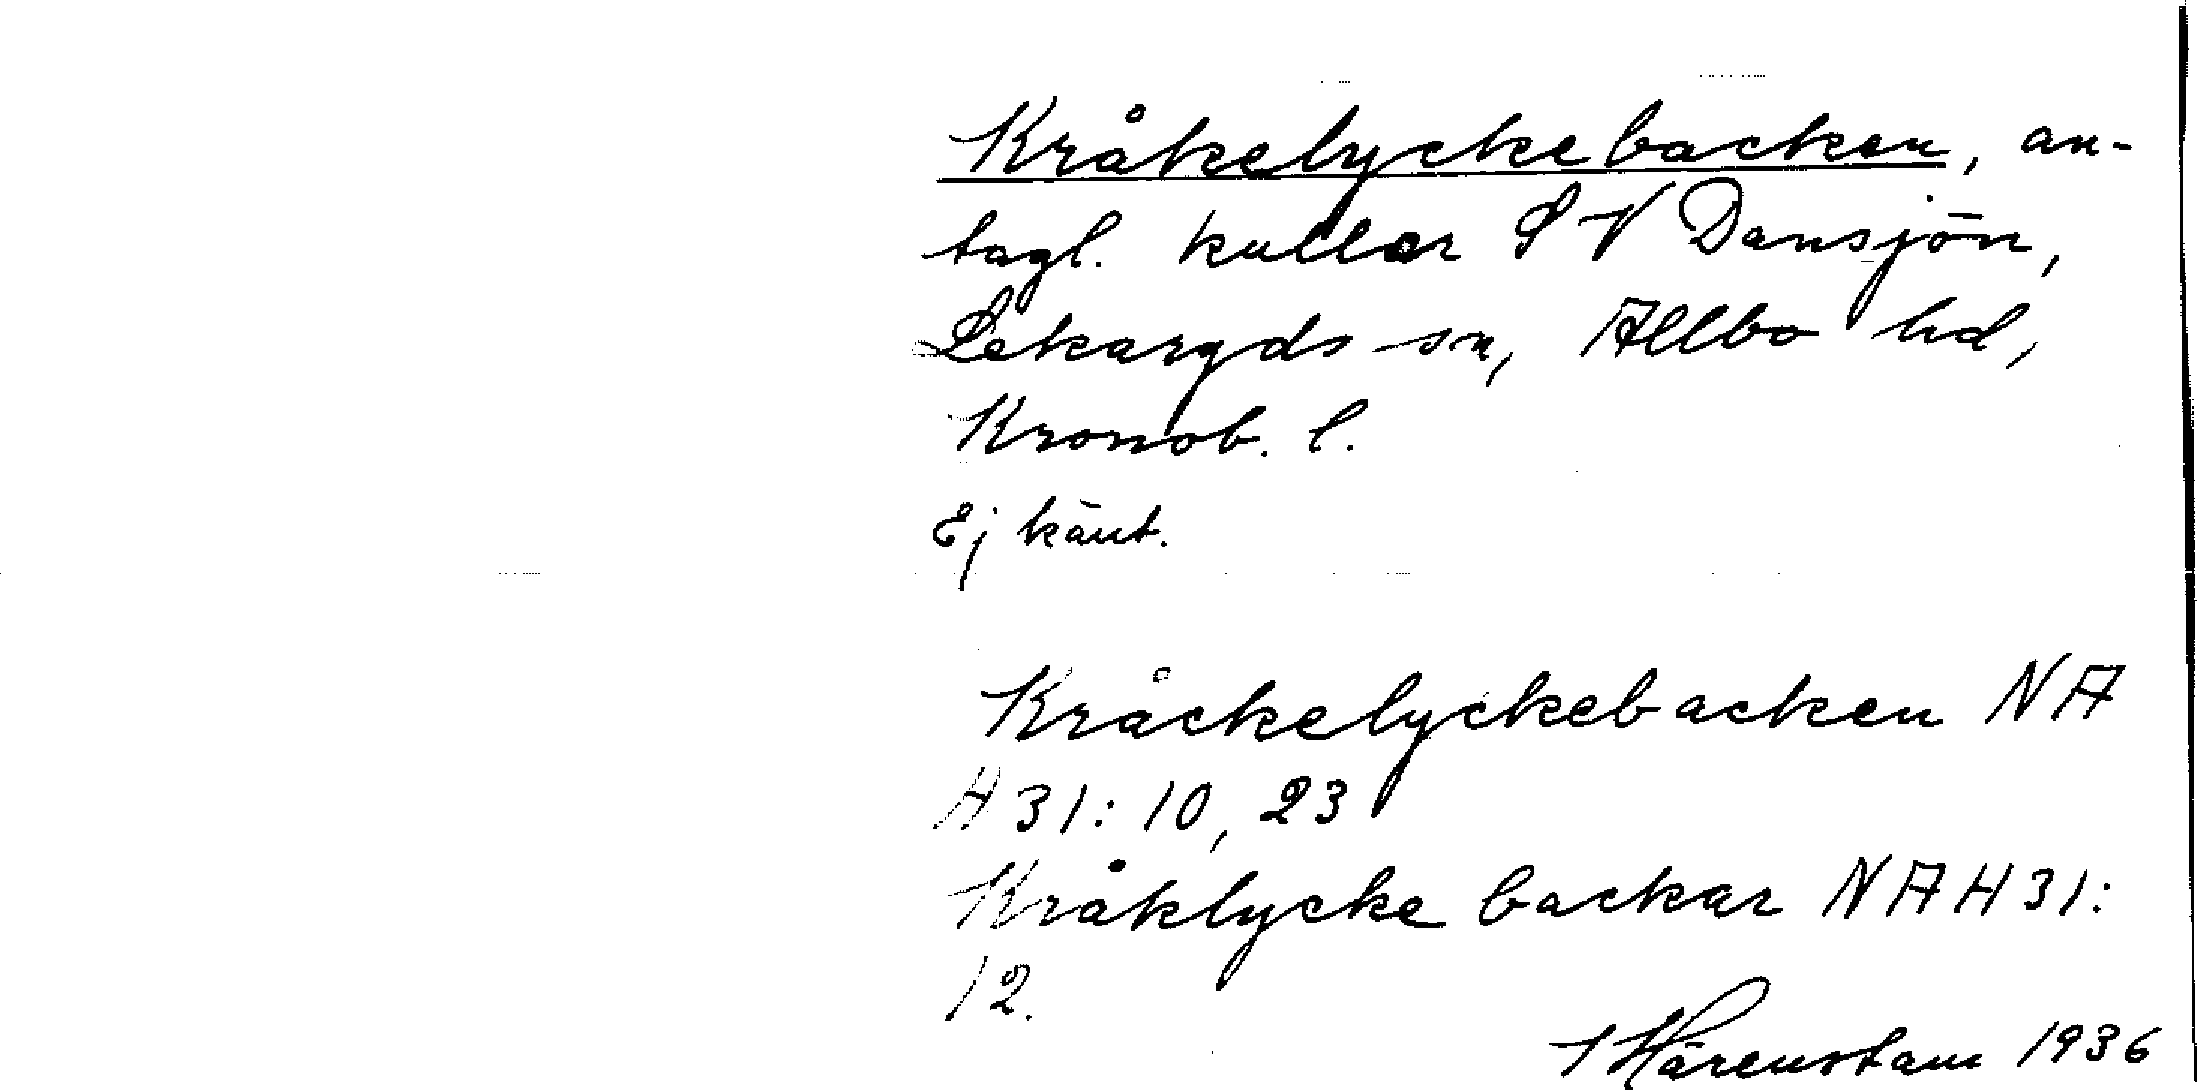 Kråkelyckebacken, an-
tagl. kullar S V Dansjön,
Lekaryds sn, Allbo hd,
Kronob. l.
Ej känt.
Kråckelyckebacken NA
H 31: 10, 23
Kråklycke backar NAH 31:
12.
Härenstam 1936